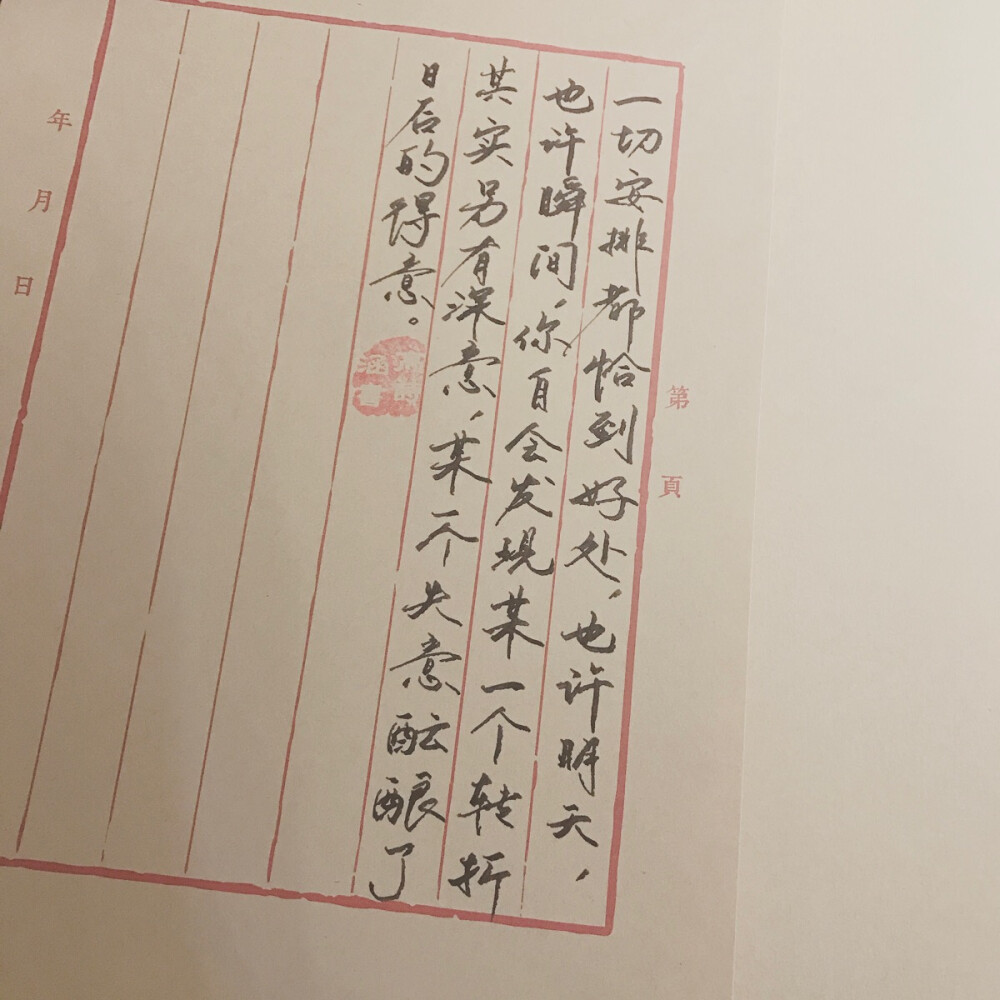 第 頁
一切安排都恰到好处，也许明天，
也许瞬间，你自会发现某一个转折
其实另有深意，某一个失意酝酿了
日后的得意。
涵書
年 月 日